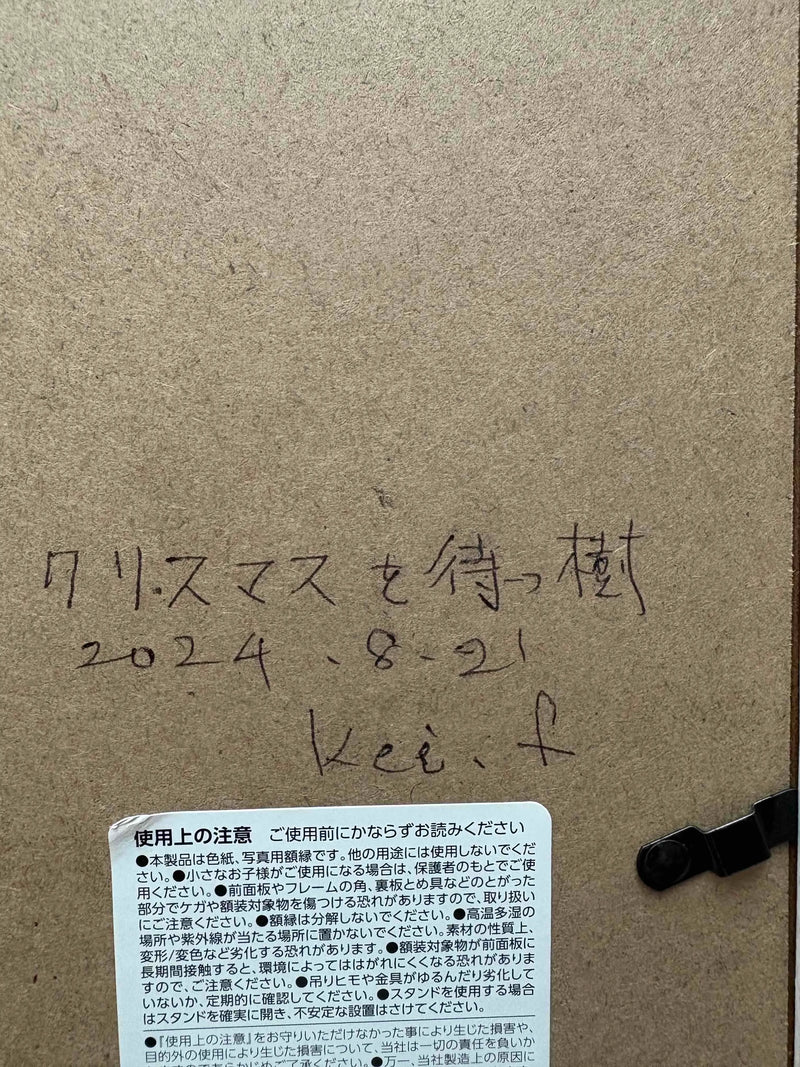 クリスマスを待つ樹
2024.8.21
kei.f
使用上の注意 ご使用前にかならずお読みください
●本製品は色紙、写真用額縁です。他の用途には使用しないでくだ
さい。●小さなお子様がご使用になる場合は、保護者のもとでご使
用ください。●前面板やフレームの角、裏板とめ具などのとがった
部分でケガや額装対象物を傷つける恐れがありますので、取り扱い
にご注意ください。●額縁は分解しないでください。●高温多湿の
場所や紫外線が当たる場所に置かないでください。素材の性質上、
変形/変色など劣化する恐れがあります。●額装対象物が前面板に
長期間接触すると、環境によってははがれにくくなる恐れがありま
すので、ご注意ください。●吊りヒモや金具がゆるんだり劣化して
いないか、定期的に確認してください。●スタンドを使用する場合
はスタンドを確実に開き、不安定な設置はさけてください。
●『使用上の注意』をお守りいただけなかった事により生じた損害や、
目的外の使用により生じた損害について、当社は一切の責任を負いか
ねますのであらかじめご了承ください。●万一、当社製造上の原因に